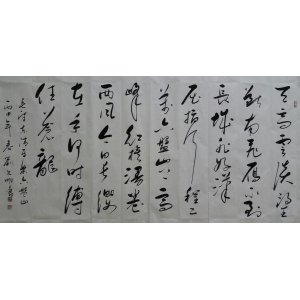 天高云淡望
断南飞雁不到
长城非好汉
屈指行程二
万六盘山上高
峰红旗漫卷
西风今日长缨
在手何时缚
住苍龙
毛泽东清平乐六盘山
丙申年